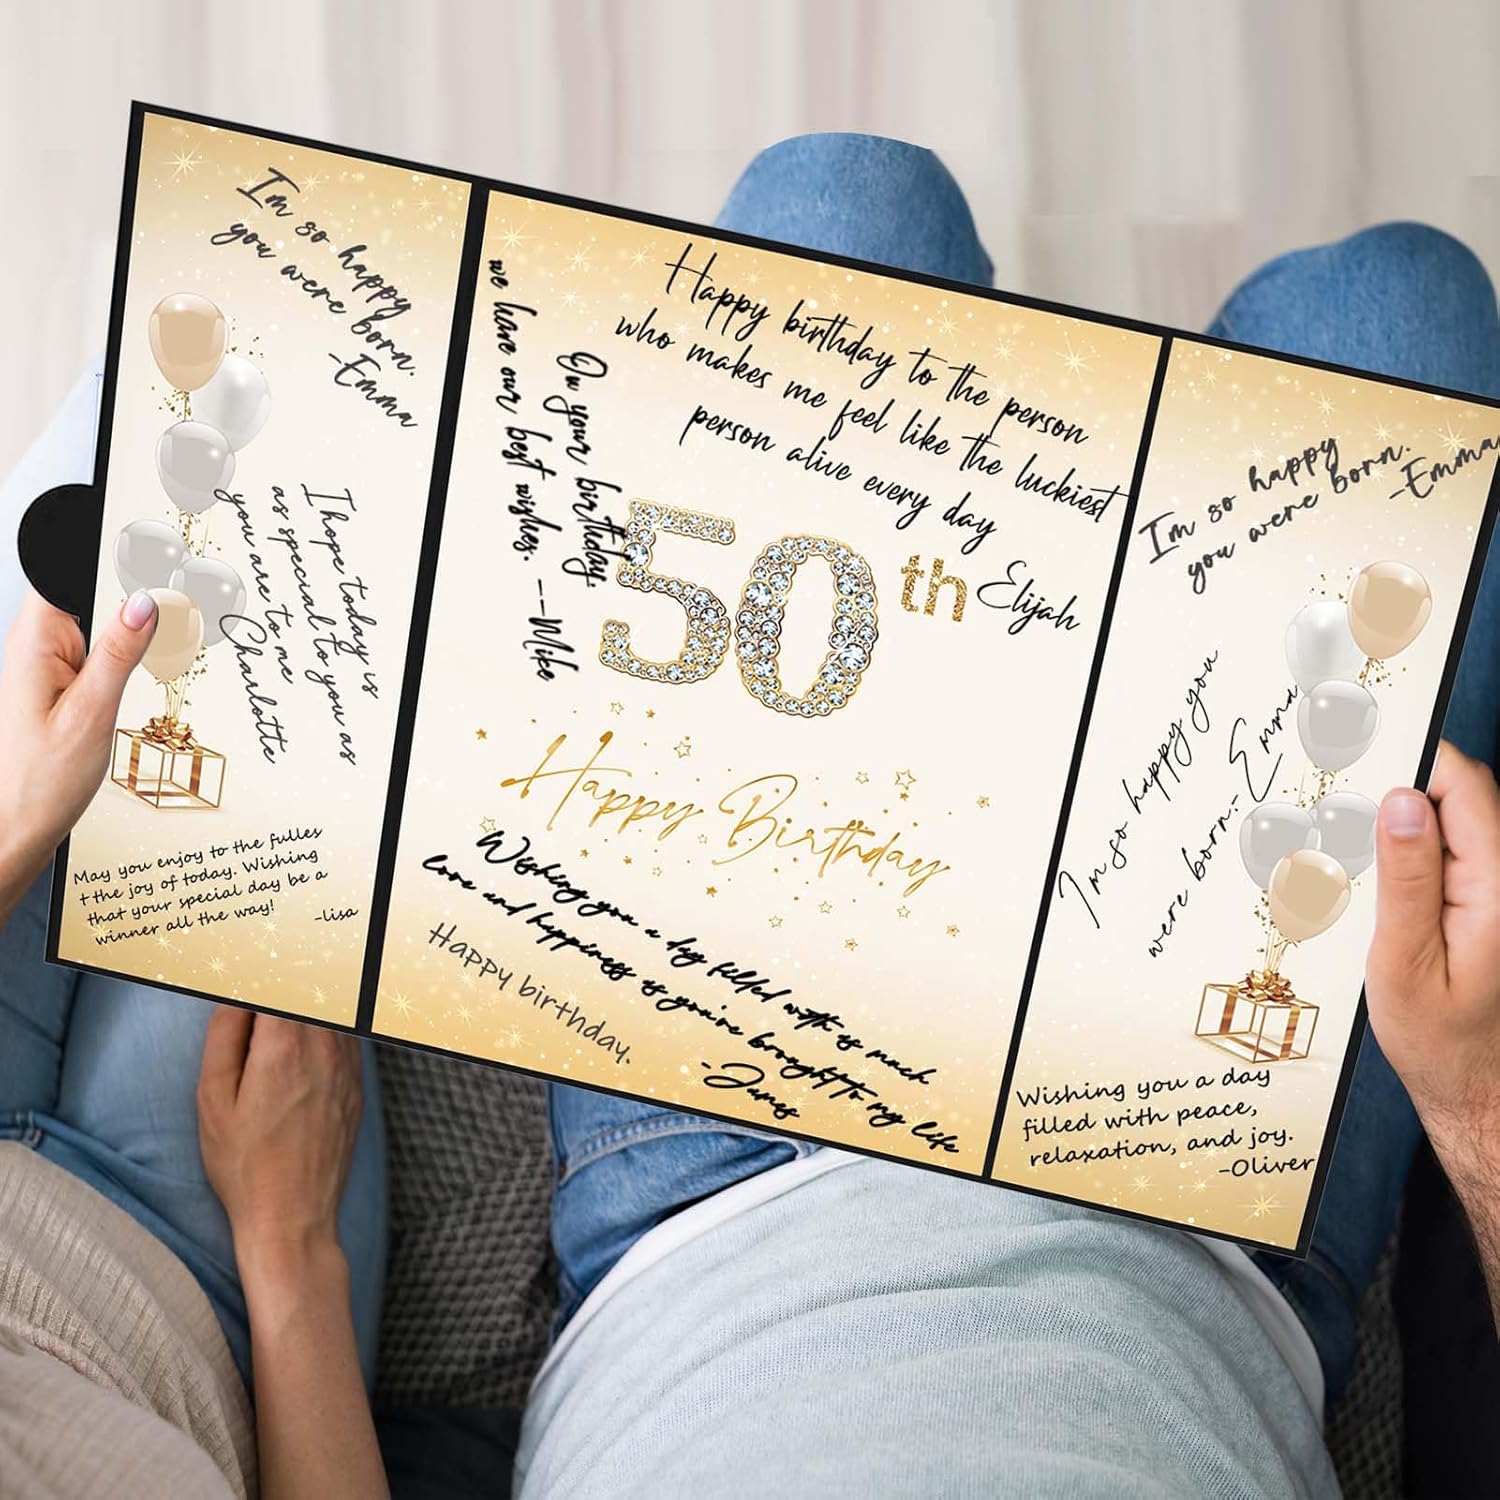 I'm so happy
you were born.
-Emma
I hope today is
as special to you as
you are to me
Charlotte
May you enjoy to the fulles
t the joy of today. Wishing
that your special day be a
winner all the way!
-lisa
Happy birthday to the person
who makes me feel like the luckiest
person alive every day
Elijah
On your birthday.
we have our best wishes. --Mike
50th
Happy Birthday
Wishing you a day filled with as much
love and happiness as you've brought to my life
-James
Happy birthday.
I'm so happy
you were born.
-Emma
I'm so happy you
were born.- Emma
Wishing you a day
filled with peace,
relaxation, and joy.
-Oliver